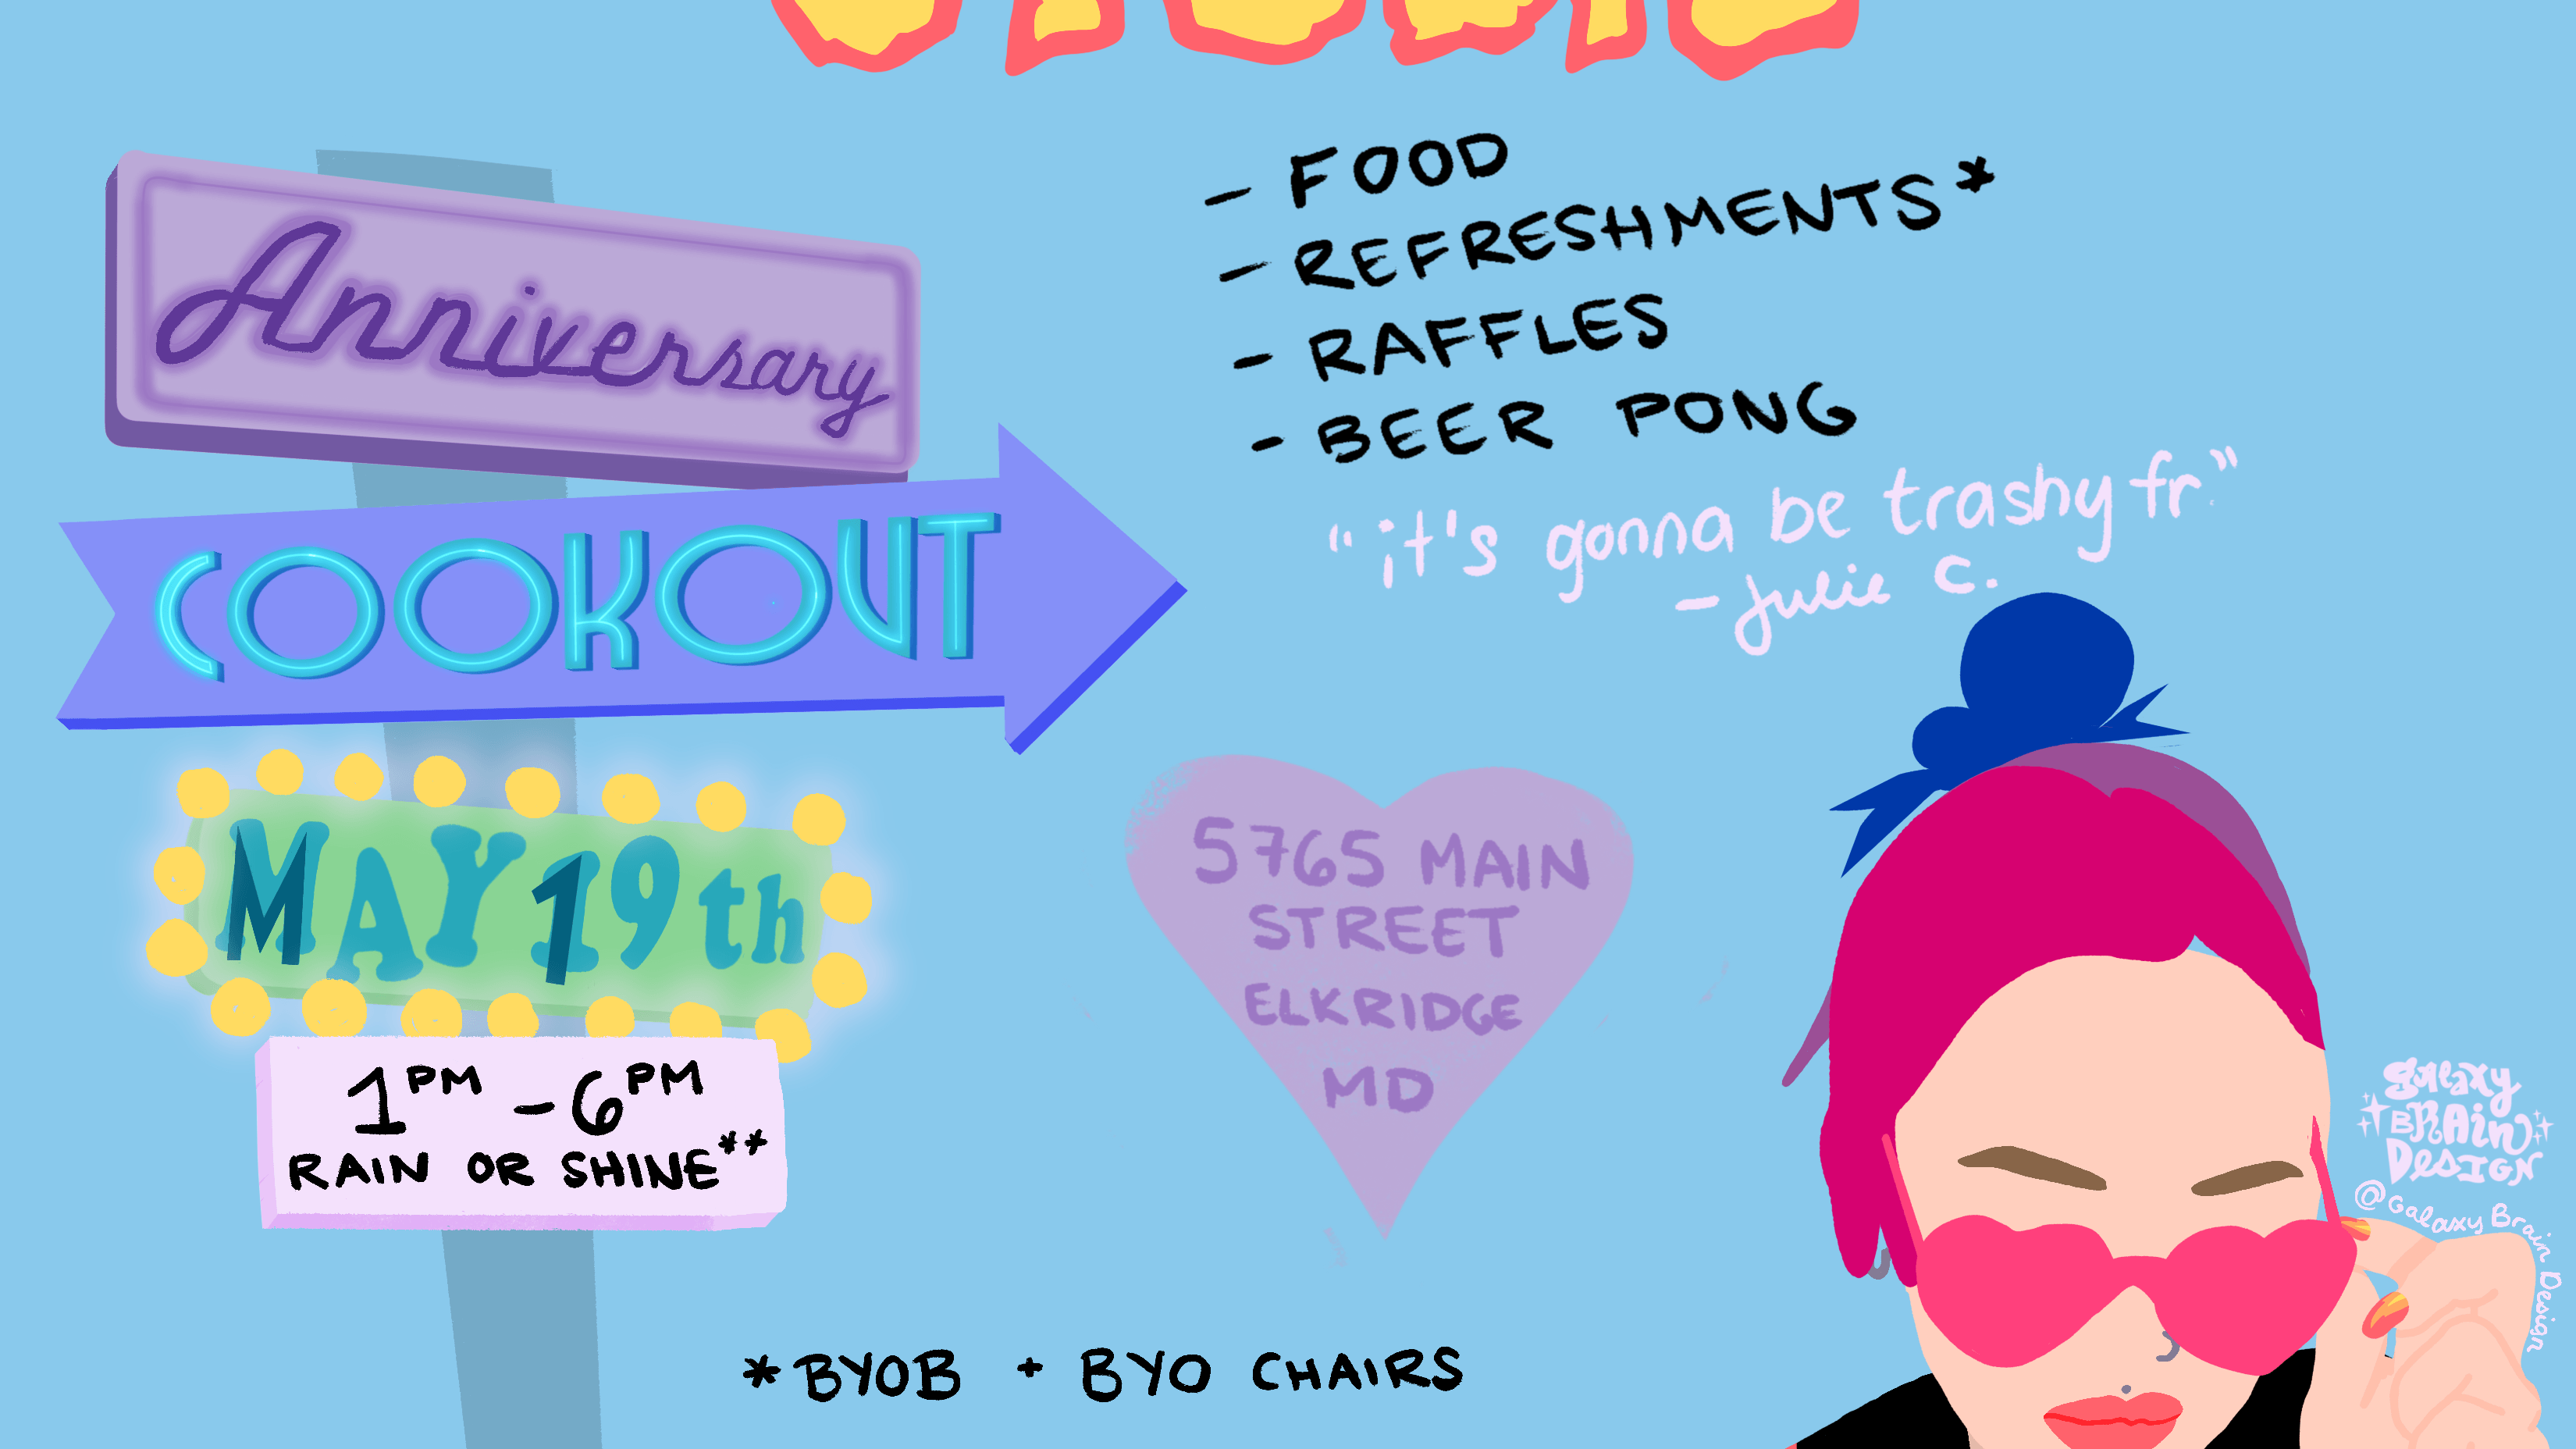 Anniversary
COOKOUT
MAY 19th
1PM - 6PM
RAIN OR SHINE**
- FOOD
- REFRESHMENTS*
- RAFFLES
- BEER PONG
"it's gonna be trashy fr."
- Julie C.
5765 MAIN
STREET
ELKRIDGE
MD
*BYOB + BYO CHAIRS
Galaxy
BRAin
DESIGN
@Galaxy Brain Design